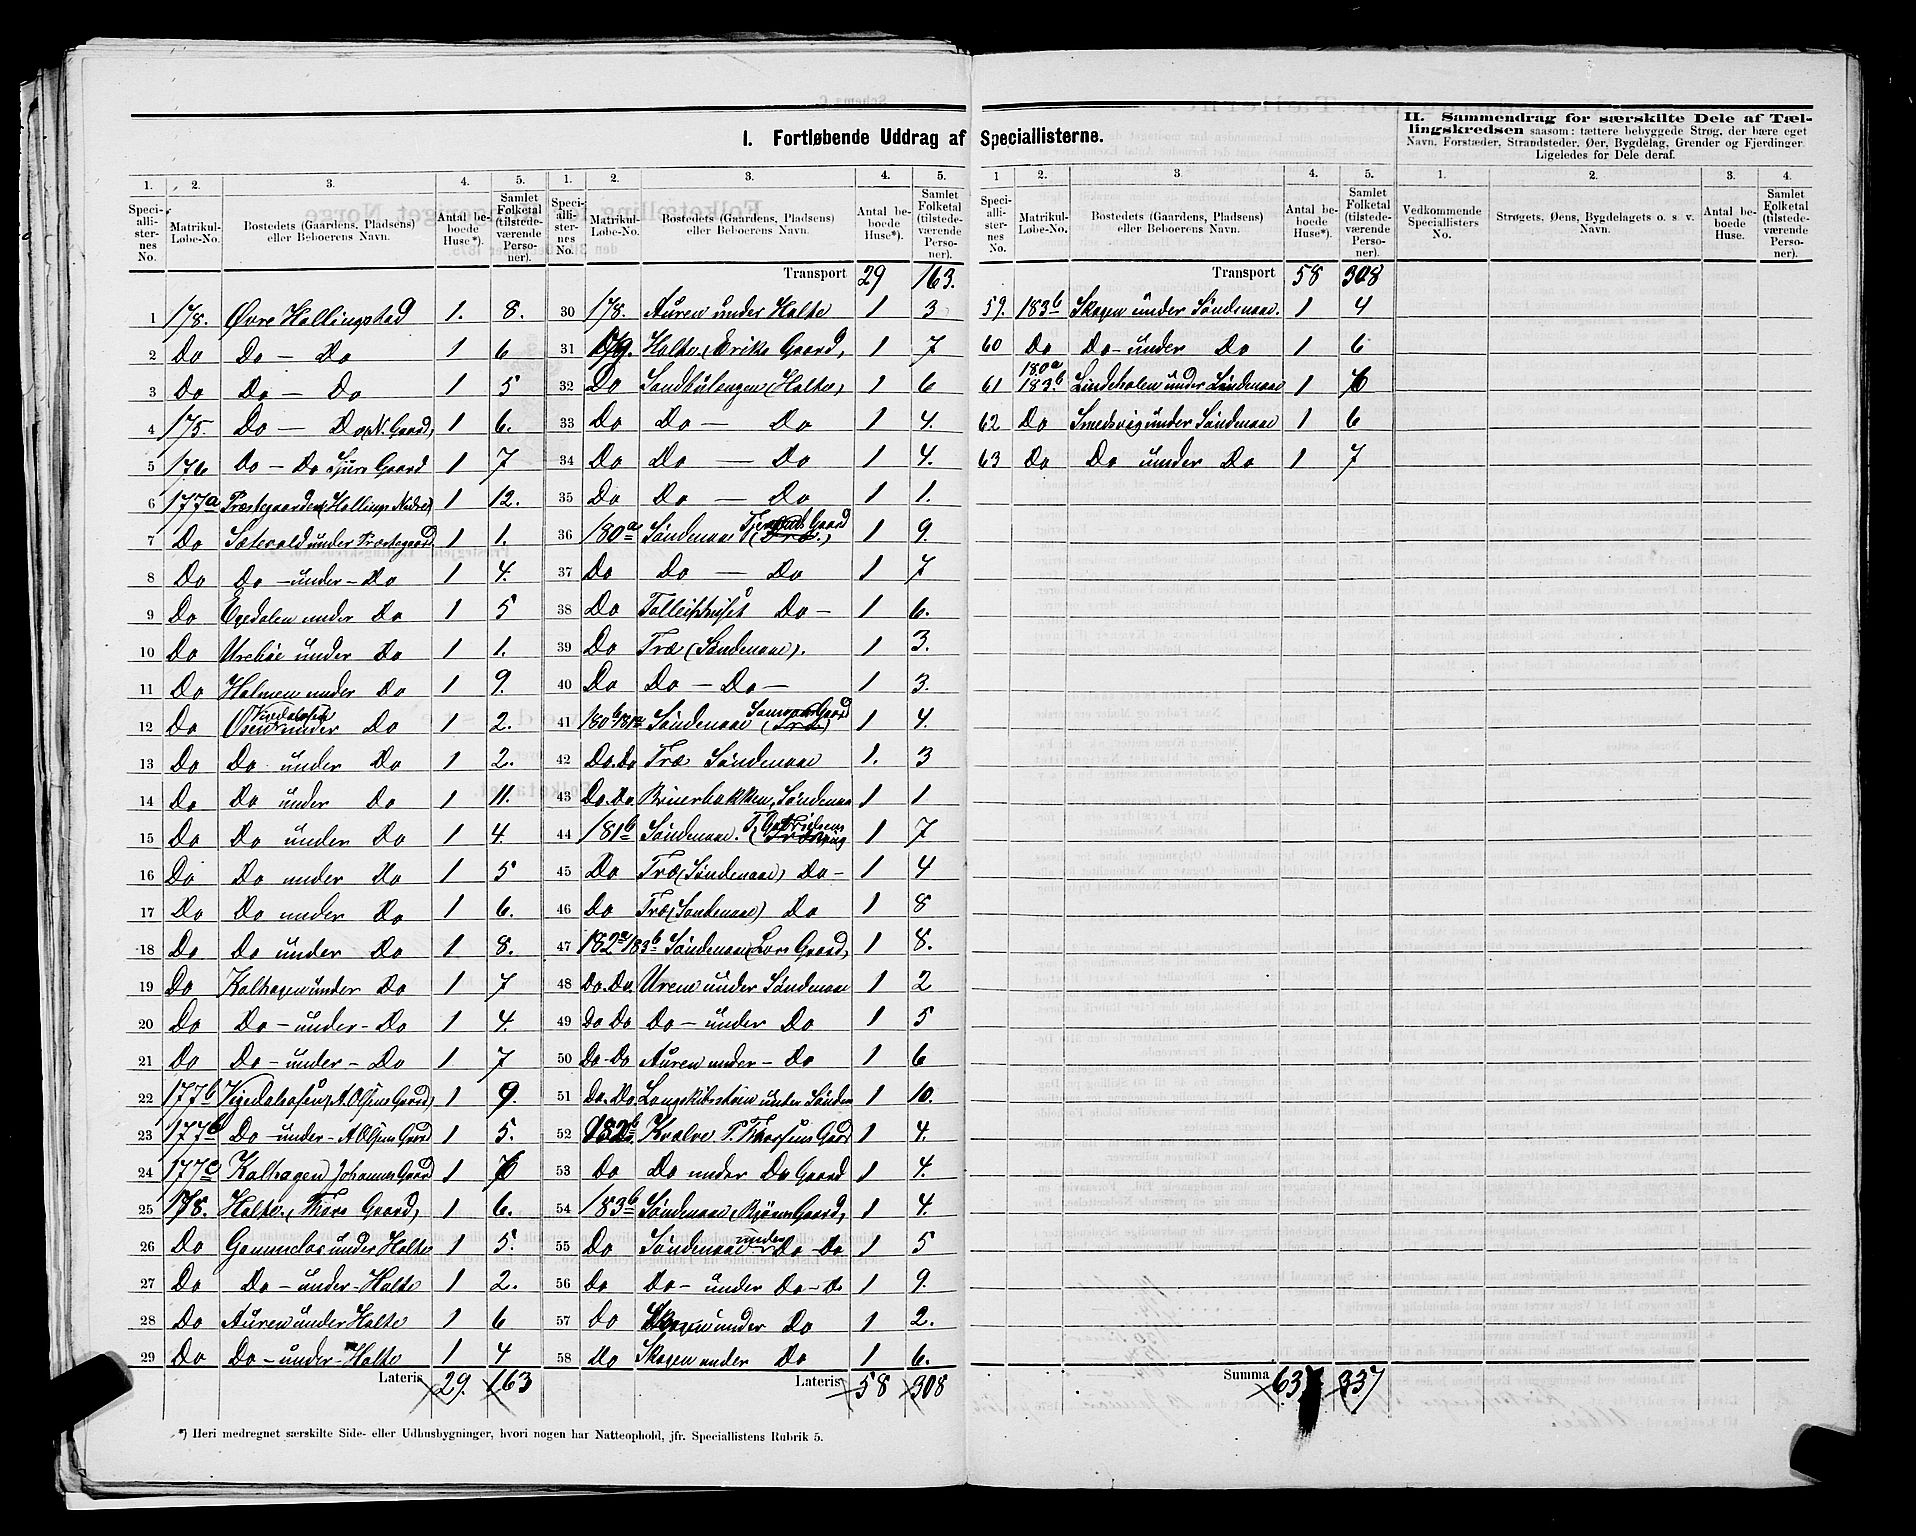 I. Fortløbende Uddrag af Speciallisterne.
II. Sammendrag for særskilte Dele af Tællingskredsen saasom: tættere bebyggede Strøg, der bære eget Navn, Forstæder, Strandsteder, Øer, Bygdelag, Grender og Fjerdinger. Ligeledes for Dele deraf.
1. 2. 3. 4. 5. 1. 2. 3. 4. 5. 1 2. 3. 4. 5. 1. 2. 3. 4.
Speciallisternes No. Matrikul-Løbe-No. Bostedets (Gaardens, Pladsens) eller Beboerens Navn. Antal beboede Huse*). Samlet Folketal (tilstedeværende Personer).
Speciallisternes No. Matrikul-Løbe-No. Bostedets (Gaardens, Pladsens) eller Beboerens Navn. Antal beboede Huse*). Samlet Folketal (tilstedeværende Personer).
Speciallisternes No. Matrikul-Løbe-No. Bostedets (Gaardens, Pladsens) eller Beboerens Navn. Antal beboede Huse*). Samlet Folketal (tilstedeværende Personer).
Vedkommende Speciallisters No. Strøgets, Øens, Bygdelagets o. s. v. Navn. Antal beboede Huse. Samlet Folketal (tilstedeværende Personer).
1 178. Øvre Hallingstad 1. 8.
2 Do Do — Do 1 6
3 Do Do — Do 1 5
4 175. Do — Do N. Gaard, 1 6.
5 176 Do — Do Sjurs Gaard 1 7
6 177a Præstegaarden (Hallings Nedre) 1 12.
7 Do Sætervold under Præstegaard 1 1.
8 Do Do — under — Do 1 4.
9 Do Egedalen under Do 1 5
10 Do Urebøe under Do 1 1.
11 Do Holmen under Do 1 9.
12 Do Osen under Do 1 2.
13 Do Do under Do 1 2.
14 Do Do under Do 1 11.
15 Do Do under Do 1 4.
16 Do Do under Do 1 5
17 Do Do under Do 1 6.
18 Do Do under Do 1 8.
19 Do Kalhagen under Do 1 7
20 Do Do — under - Do 1 4.
21 Do Do — under — Do 1 7
22 177b Vigedalsosen, A. Olsens Gaard) 1 9.
23 177b Do — under - A Olsens Gaard 1 5.
24 177c Kalhagen Johannes Gaard 1
25 178. Halte. (Thors Gaard, 1 6.
26 Do Gammelos under Halte 1 5.
27 Do Do — under - Halte 1 2.
28 Do Auren under Halte 1 6
29 Do Do — under - Halte 1 4
Lateris 29. 163
Transport 29 163.
30 178. Auren under Halte 1 3
31 179. Halte (Eriks Gaard, 1 7
32 Do Sandbulengen (Halte, 1 6
33 Do Do — Do 1 4.
34 Do Do — Do 1 4.
35 Do Do — Do 1 1.
36 180a Søndenaae Gaard 1 9.
37 Do Do — Do 1 7
38 Do Tolleifshuset Do — 1 6.
39 Do Træ (Søndenaae). 1 3.
40 Do Do — Do — 1 3.
41 180b Søndenaae Gaard 1 4.
42 Do. Do Træ Søndenaae 1. 3
43 Do. Do. Bruerbakken, Søndenaa 1 1
44 181b Søndenaae. 1 7
45 Do Træ (Søndenaae) Do — 1 4
46 Do Træ (Søndenaae) Do 1 8
47 182a 183b Søndenaae (Lars Gaard, 1 8.
48 Do. Do. Uren under Søndenaae 1 2
49 Do Do Do — under Do 1 5
50 Do - Do Auren under - Do 1 6
51 Do. Do. Langskibsteen under Sønden 1 10.
52 182b Kvalve P. Gaard 1 4.
53 Do Do under Do Gaard 1 4.
54 183b Søndenaae, Bjørns Gaard, 1 4.
55 Do Søndenaae under Do - Do 1 5
56 Do Do — under Do — Do 1 9.
57 Do Skogen under Do 1 2.
58 Do Skogen under Do 1 6.
Lateris 58 308
Transport 58 308
59. 183b Skogen under Søndenaae. 1 4
60 Do Do — under Do 1 6
61 180a 183b Lindeholen under Søndenaae 1
62 Do Smedsvig under Søndenaae 1 6
63 Do Do under Do 1 7
Summa 63 337
*) Heri medregnet særskilte Side- eller Udhusbygninger, hvori nogen har Natteophold, jfr. Speciallistens Rubrik 5.